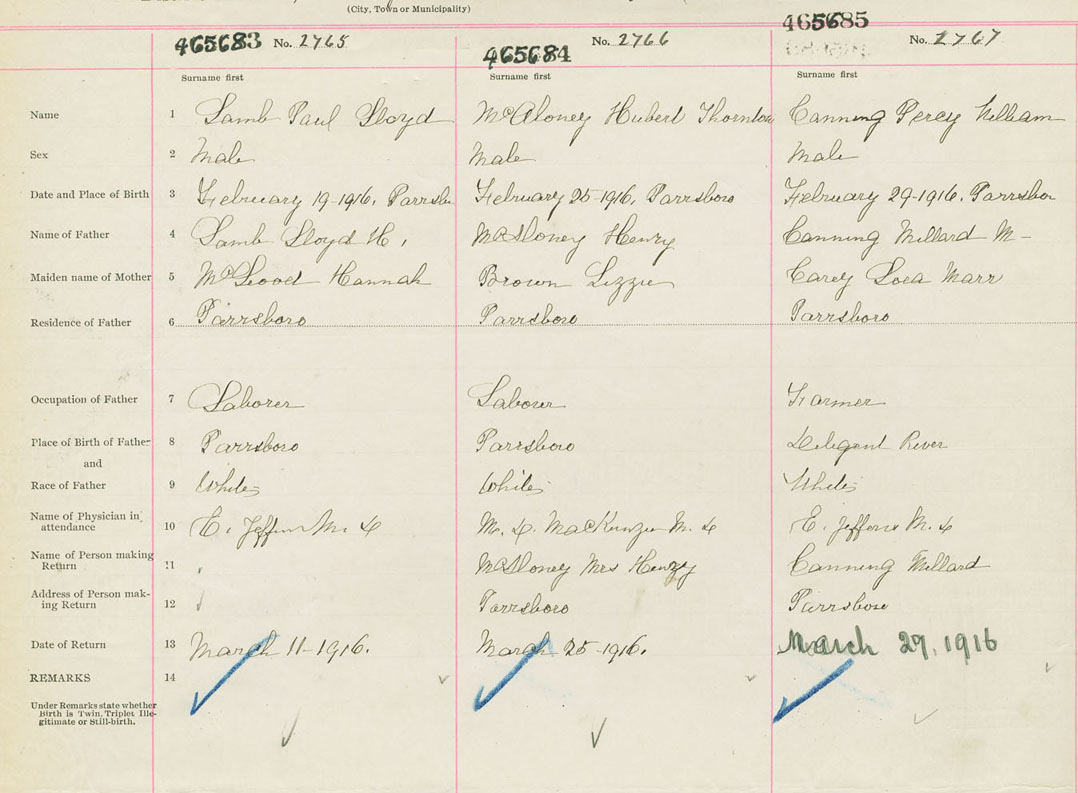 (City, Town or Municipality)
465683 No. 2765
465684 No. 2766
465685 No. 2767
Surname first Surname first Surname first
Name 1 Lamb Paul Lloyd McAloney Hubert Thornton Canning Percy William
Sex 2 Male Male Male
Date and Place of Birth 3 February 19-1916. Parrsbo February 25-1916. Parrsboro February 29-1916. Parrsbor
Name of Father 4 Lamb Lloyd H. McAloney Henry Canning Millard M-
Maiden name of Mother 5 McLeod Hannah Brown Lizzie Carey Marr
Residence of Father 6 Parrsboro Parrsboro Parrsboro
Occupation of Father 7 Laborer Laborer Farmer
Place of Birth of Father 8 Parrsboro Parrsboro Diligent River
and
Race of Father 9 White White White
Name of Physician in
attendance 10 E. Jeffers M.D M. D. MacKenzie M.D E. Jeffers M.D
Name of Person making
Return 11 " McAloney Mrs Henry Canning Millard
Address of Person mak-
ing Return 12 Parrsboro Parrsboro
Date of Return 13 March 11-1916. March 25-1916. March 29, 1916
REMARKS 14
Under Remarks state whether
Birth is Twin, Triplet Ille-
gitimate or Still-birth.